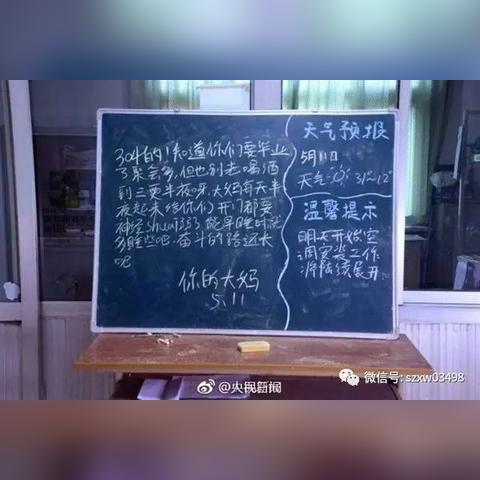 304的!知道你们要毕业
了聚会多,但也别老喝酒
到三更半夜呀,大妈每天半
夜起来给你们开门都要
神经shuai了,能早睡时就
多睡些吧,奋斗的路还长
呢
你的大妈
5.11
天气预报
5月11日
天气 31~12°
温馨提示
明天开始,空
调安装工作
将陆续展开
@央视新闻
微信号: szxw03498